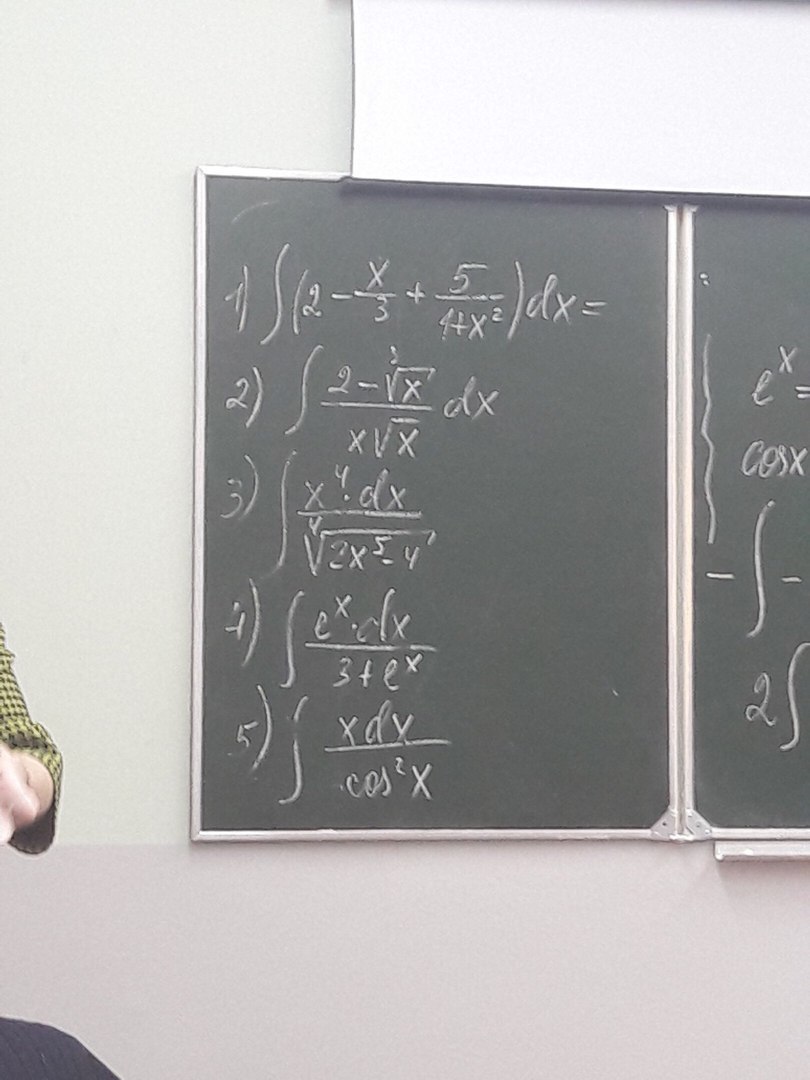 1) ∫(2 - x/3 + 5/(4+x²))dx =
2) ∫ (2-∛x)/(x√x) dx
3) ∫ (x⁴·dx)/∜(2x⁵-4)
4) ∫ (eˣ·dx)/(3+eˣ)
5) ∫ (xdx)/(cos²x)
eˣ=
cosx
-∫-
2∫